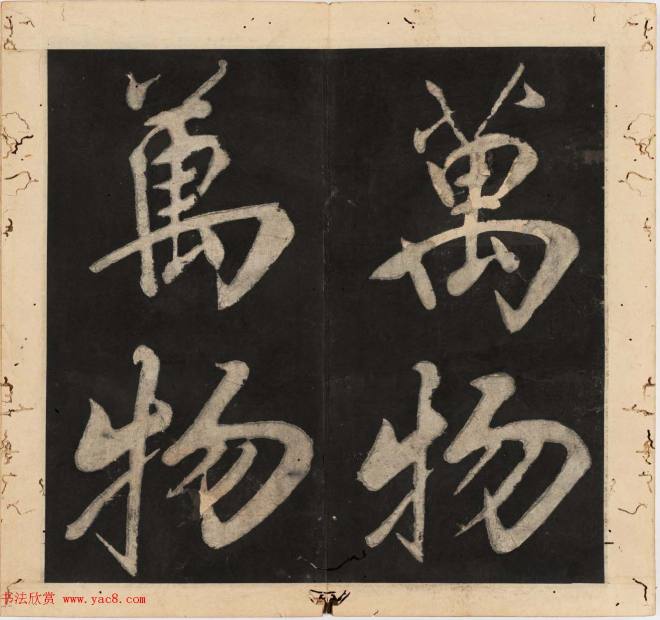 萬物
萬物
书法欣赏 www.yac8.com